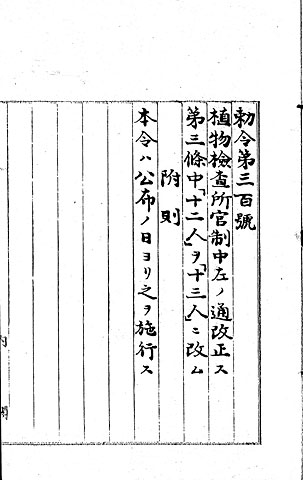 勅令第三百號
植物檢査所官制中左ノ通改正ス
第三條中「十二人」ヲ「十三人」ニ改ム
附則
本令ハ公布ノ日ヨリ之ヲ施行ス
内閣